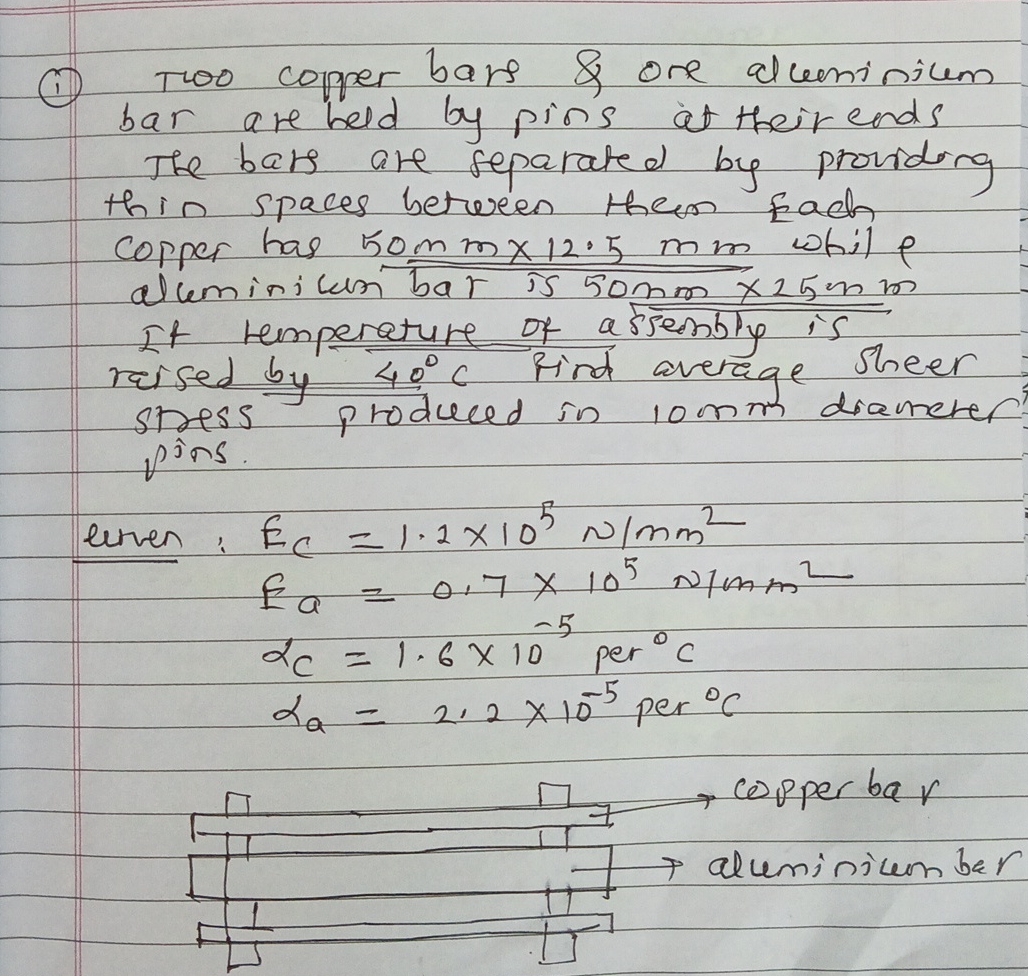 ① Two copper bars & one aluminium
bar are held by pins at their ends
The bars are separated by providing
thin spaces between them Each
copper has 50mm x 12.5 mm while
aluminium bar is 50mm x 25mm
If temperature of assembly is
raised by 40°C Find average sheer
stress produced in 10mm diameter
pins.
Given : Ec = 1.2 x 10⁵ N/mm²
Ea = 0.7 x 10⁵ N/mm²
αc = 1.6 x 10⁻⁵ per °C
αa = 2.2 x 10⁻⁵ per °C
copper bar
aluminium bar